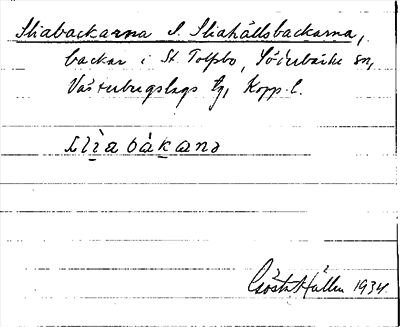 Sliabackarna l. Sliahällsbackarna,
backar i St. Tolsbo, Söderbärke sn,
Västerbergslags tg, Kopp. l.
slìabàkanə
Gösta Hällen 1934